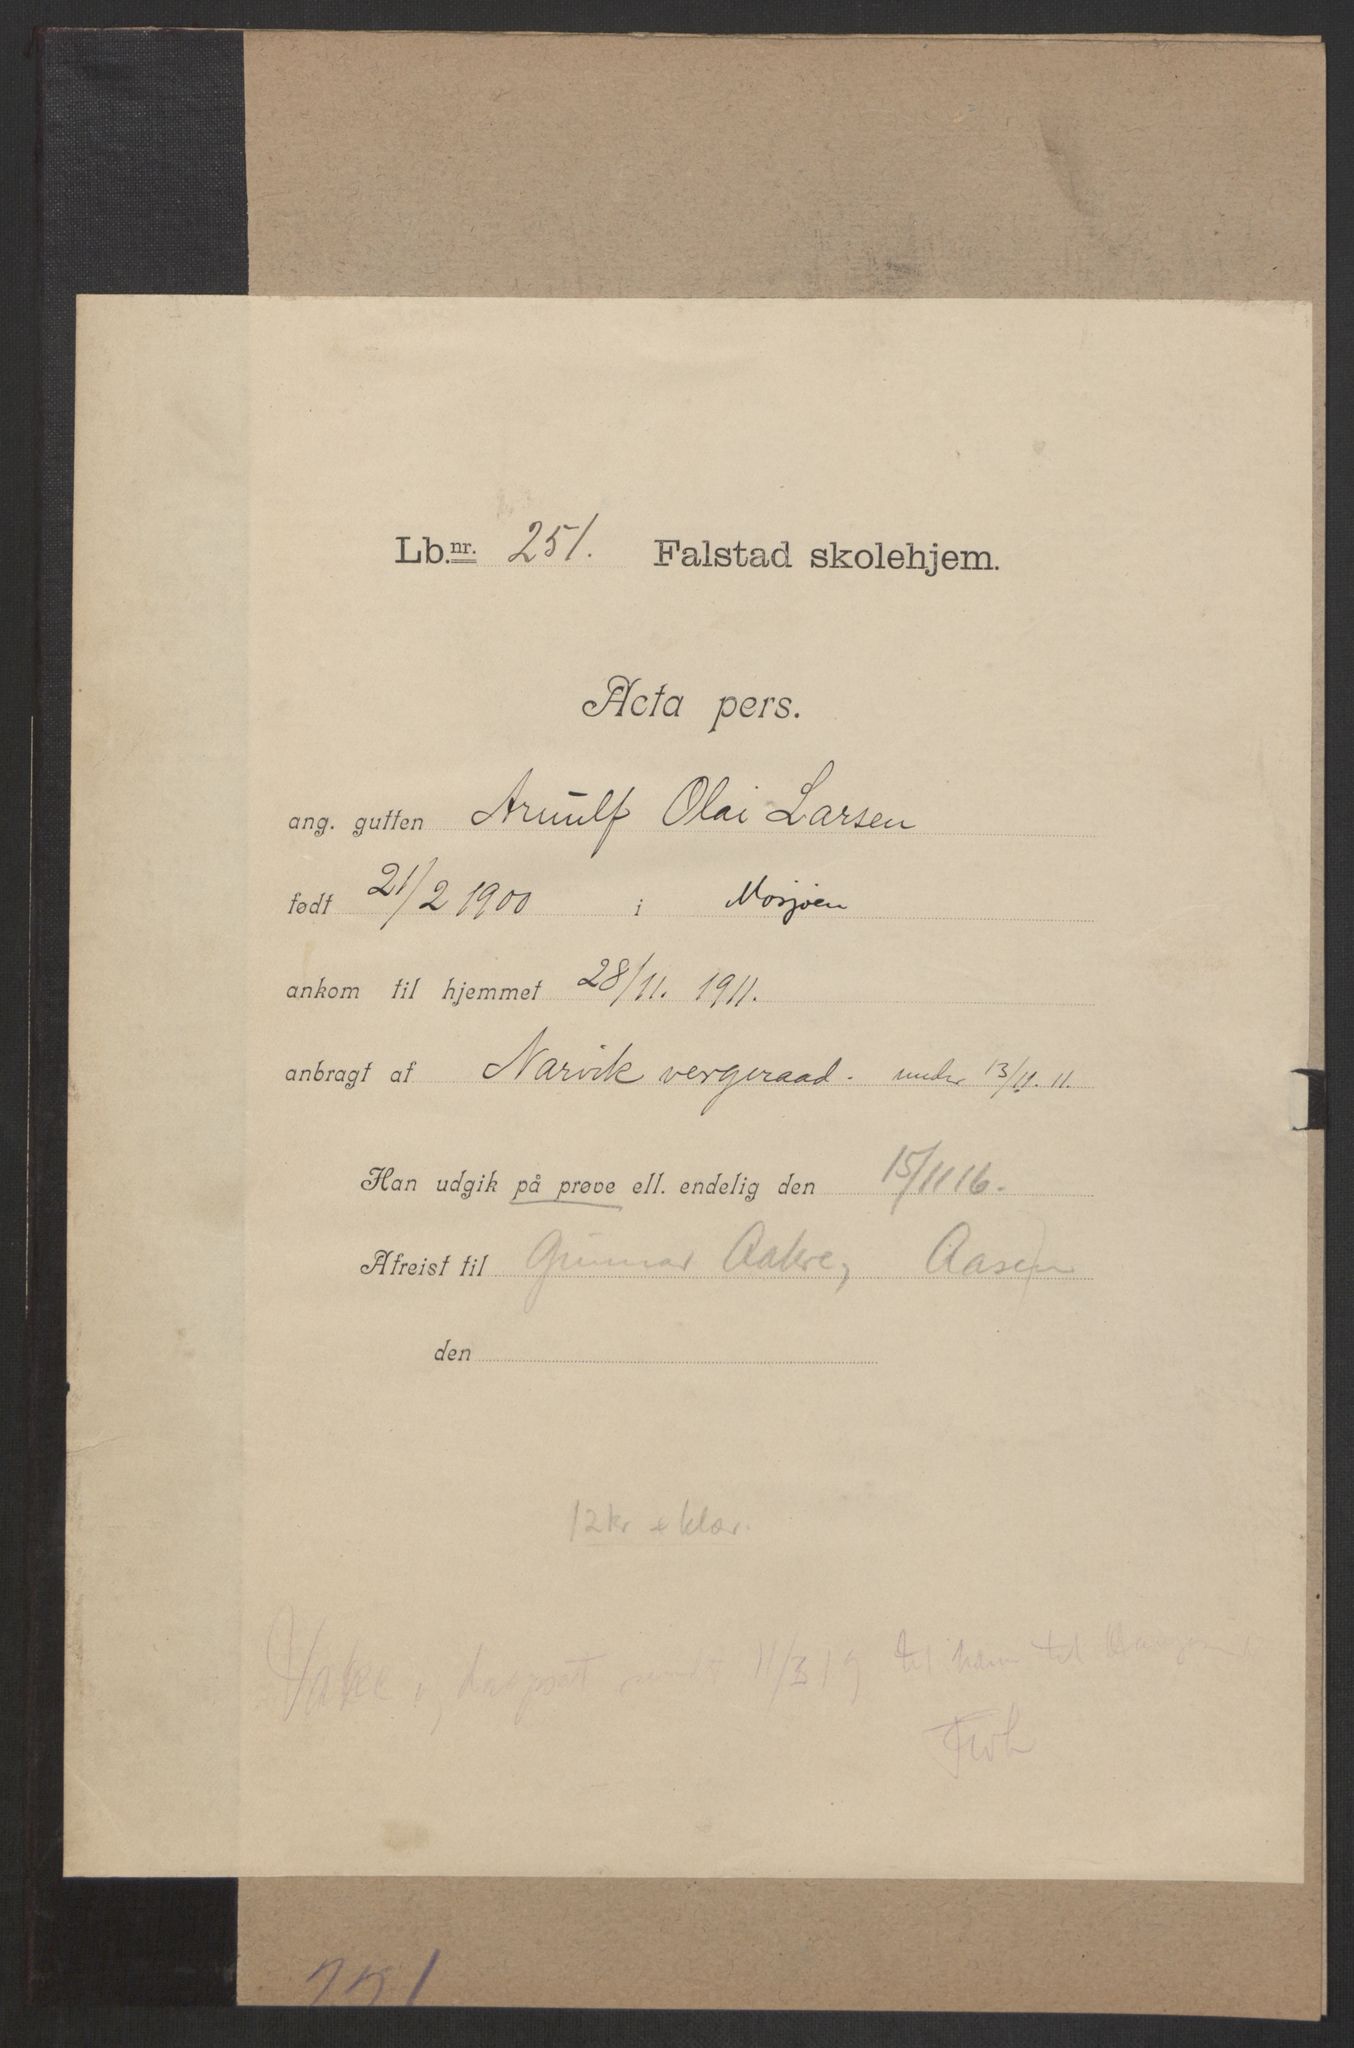 Lb.nr. 251. Falstad skolehjem.
Acta pers.
ang. gutten Arnulf Olai Larsen
født 21/2 1900 i Mosjøen
ankom til hjemmet 28/11. 1911.
anbragt af Narvik vergeraad. under 13/11. 11.
Han udgik på prøve ell. endelig den 15/11 16.
Afreist til Gunnar Aakre, Aasen
den
12 kr + klær.
sendt 11/3 19 til ham til
251